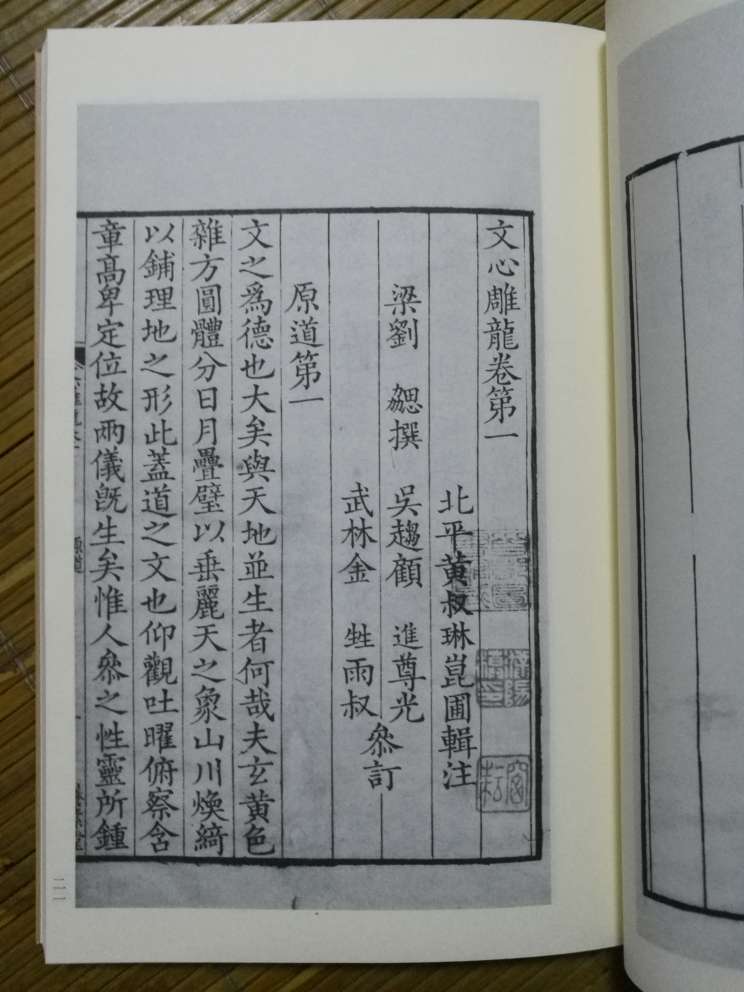 文心雕龍卷第一
北平黃叔琳崑圃輯注
梁劉　勰撰　吳趨顧　進尊光
參訂
武林金　甡雨叔
原道第一
文之爲德也大矣與天地並生者何哉夫玄黃色
雜方圓體分日月疊璧以垂麗天之象山川煥綺
以鋪理地之形此蓋道之文也仰觀吐曜俯察含
章高卑定位故兩儀旣生矣惟人參之性靈所鍾
原道
二一